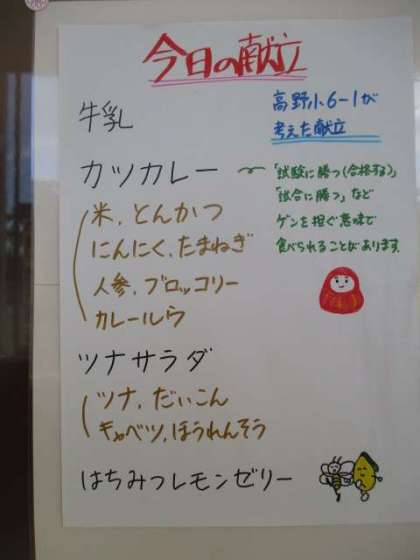 今日の献立
牛乳
高野小6-1が
考えた献立
カツカレー
「試験に勝つ(合格する)」
「試合に勝つ」など
ゲンを担ぐ意味で
食べられることがあります
米、とんかつ
にんにく、たまねぎ
人参、ブロッコリー
カレールウ
ツナサラダ
ツナ、だいこん
キャベツ、ほうれんそう
はちみつレモンゼリー